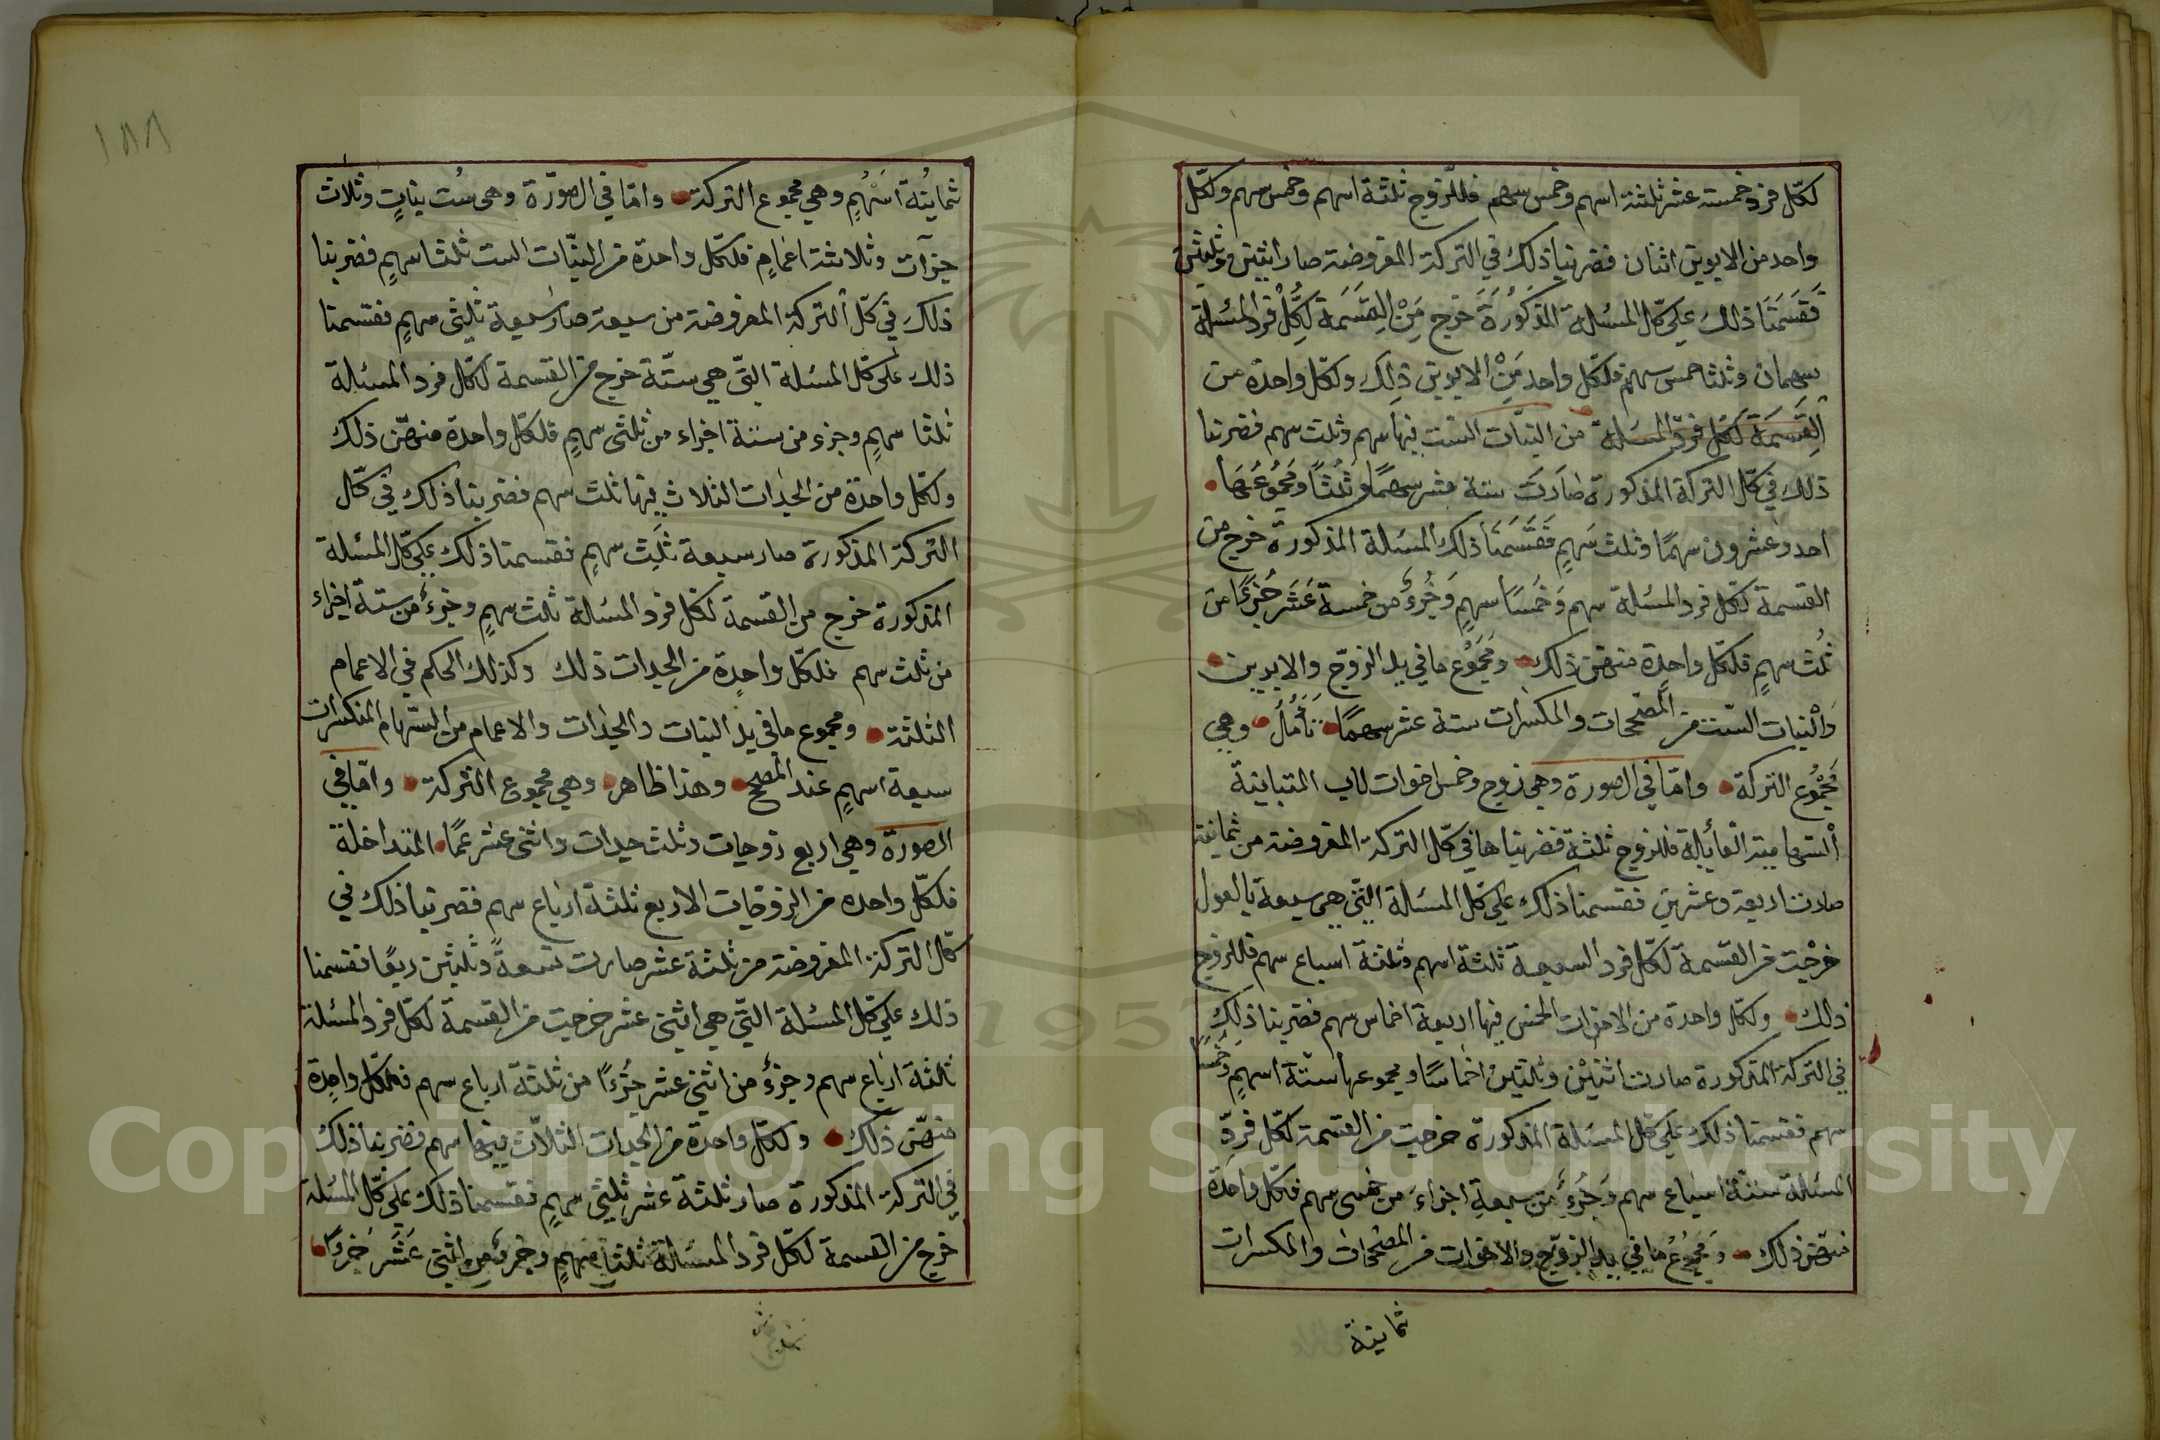 لكل فرد خمسة عشر ثلثة اسهم وخمس سهم فللزوج ثلثة اسهم وخمس سهم ولكل
واحد من الابوين اثنان فضربنا ذلك في التركة المفروضة صار اثنين وثلثين
فَقَسَمَنَا ذلك على كل المسئلة المَذكُورَةَ خرج مِنْ القِسَمَة لِكُلِّ فرد المسئلة
سهمان وثلثا خمس سهم فلكل واحد مِنْ الابوين ذلك ولكل واحدة من
القِسَمَة لكل فرد المسئلة من البنات الست فيها سهم وثلث سهم فضربنا
ذلك في كل التركة المذكورة صَارَت ستة عشر سهمًا وثُلُثًا ومَجموُعُهَا
احد وعشرون سهمًا وثلث سَهمٍ فَقَسَمَنَا ذلك المسئلة المذكورة خرج من
القسمة لكل فرد المسئلة سهم وَخُمسًا سهمٍ وَجُزءٌ من خمسة عَشَرَ جُزءًا من
ثُلُث سهمٍ فلكل واحدةٍ منهن ذلك ومَجمُوُع ما في يد الزوج والابوين
وَالْبنات الستت من المصححات والمكسرات ستة عشر سهمًا تَأَمُّلُ وهي
مَجْمُوُع التركة واما في الصورة وهي زوج وخمس اخوات لاب المتباينة
السهامية العائلة فللزوج ثلثة فضربناها في كل التركة المفروضة من ثمانية
صارت اربعة وعشرين فقسمنا ذلك على كل المسئلة التي هي سبعة بالعول
خرجت من القسمة لكل فرد السبعة ثلثة اسهم وثلثة اسباع سهم فللزوج
ذلك ولكل واحدة من الاخوات الخمس فيها اربعة اخماس سهم فضربنا ذلك
في التركة المذكورة صارت اثنين وثلثين اخماسًا ومجموعها ستة اسهمٍ وخُمسًا
سهم فقسمنا ذلك على كل المسئلة المذكورة خرجت من القسمة لكل فرد
المسئلة ستة اسباع سهم وَجُزءٌ من سبعةِ اجزاءَ من خمسى سهم فلكل واحدة
منهن ذلك وَمَجموُعُ ما في يد الزوج والاخوات من المصححات والمكسرات
ثمانية
ثمانِيُة اَسْهُمٍ وهي مجموع التركة واما في الصورة وهي سُت بناتٍ وثلاث
جدات وثلاثة اعمامٍ فلكل واحدة من البنات الست ثلثا سهمٍ فضربنا
ذلك في كل التركة المفروضة من سبعة صار سبعة ثلثي سهمٍ فقسمنا
ذلك على كل المسئلة التي هي ستة خرج من القسمة لكل فرد المسئلة
ثلثا سهمٍ وجزء من ستة اجزاء من ثلثي سهمٍ فلكل واحدة منهن ذلك
ولكل واحدة من الجدات الثلاث فيها ثلث سهم فضربنا ذلك في كل
التركة المذكورة صار سبعة ثلث سهمٍ فقسمنا ذلك على كل المسئلة
المذكورة خرج من القسمة لكل فرد المسئلة ثلث سهمٍ وجزءٌ من ستة اجزاء
من ثلث سهم فلكل واحدٍة من الجدات ذلك وكذلك الحكم في الاعمام
الثلثة ومجموع ما في يد البنات والجدات والاعمام من السهام المنكسرات
سبعة اسهمٍ عند المصحح وهذا ظاهر وهي مجموع التركة واما في
الصورة وهي اربع زوجات وثلث جدات واثني عشر عمًا المتداخلة
فلكل واحده من الزوجات الاربع ثلثة ارباع سهم فضربنا ذلك في
كل التركة المفروضة من ثلثة عشر صارت تسعةً وثلثين ربعًا فقسمنا
ذلك على كل المسئلة التي هي اثني عشر خرجت من القسمة لكل فرد المسئلة
ثلثة ارباع سهم وجزءٌ من اثني عشر جُزءًا من ثلثة ارباع سهم فلكل واحِدة
منهن ذلك ولكل واحدة من الجدات الثلاث فيها سهم فضربنا ذلك
في التركة المذكورة صار ثلثة عشر ثلثي سهمٍ فقسمنا ذلك على كل المسئلة
خرج من القسمة لكل فرد المسئلة ثلثا سهمٍ وجزء من اثني عَشَرَ جزءًا
١٨٨
Copyright © King Saud University
1957